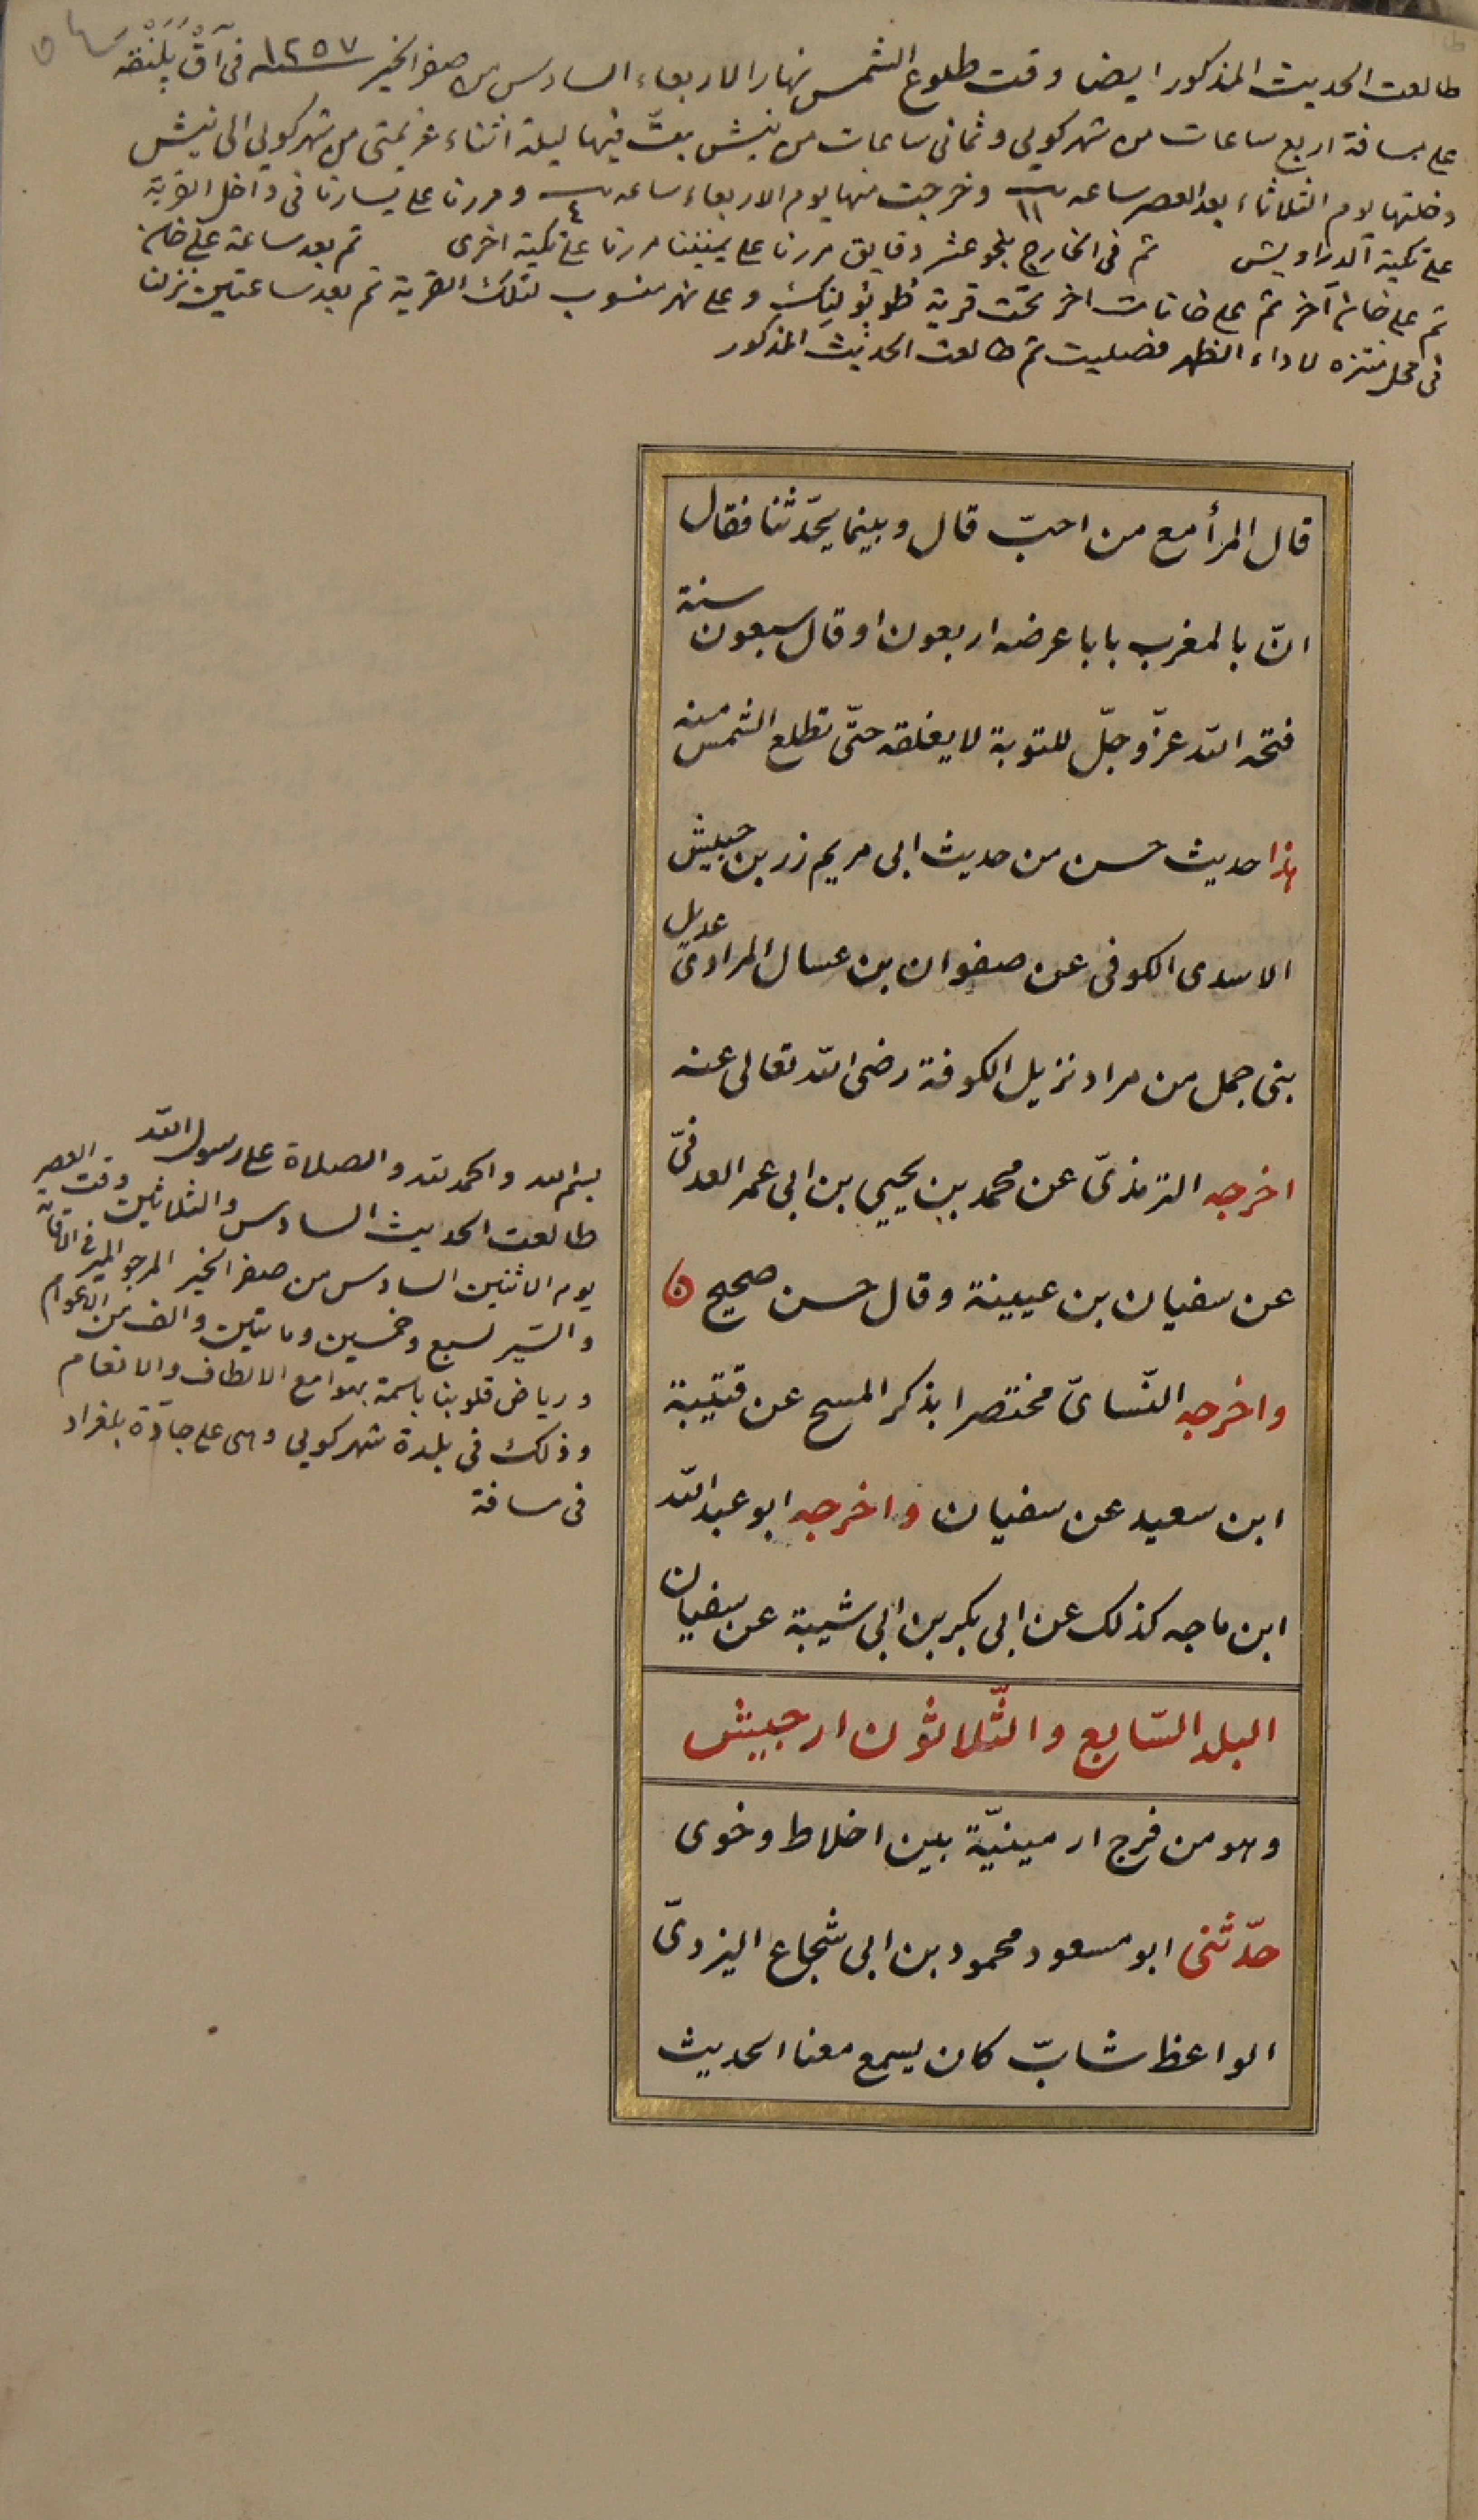 طالعت الحديث المذكور ايضا وقت طلوع الشمس نهار الاربعاء السادس من صفر الخير سنة ١٢٥٧ فى آق پَلَنْقَه
على مسافة اربع ساعات من شهركويى وثمانى ساعات من نيش بتّ فيها ليلة اثناء عزيمتى من شهركويى الى نيش
دخلتها يوم الثلاثاء بعد العصر ساعه ١١ وخرجت منها يوم الاربعاء ساعه ٤ ومررنا على يسارنا فى داخل القرية
على تكية الدراويش ثم فى الخارج بنحو عشر دقايق مررنا على يميننا مررنا على تكية اخرى ثم بعد ساعة على خان
ثم على خان آخر ثم على خانات اخر تحت قرية وعلى نهر منسوب لتلك القرية ثم بعد ساعتين نزلنا
فى محل منتزه لاداء الظهر فصليت ثم طالعت الحديث المذكور
قال المرأ مع من احبّ قال وبينما يحدّثنا فقال
انّ بالمغرب بابا عرضه اربعون او قال سبعون سنة
فتحه الله عزّ وجلّ للتوبة لا يغلقه حتّى تطلع الشمس منه
هذا حديث حسن من حديث ابى مريم زر بن حبيش
الاسدى الكوفى عن صفوان بن عسال المرادىّ عديل
بنى جمل من مراد نزيل الكوفة رضى الله تعالى عنه
اخرجه الترمذىّ عن محمد بن يحيى بن ابى عمر العدنىّ
عن سفيان بن عيينة وقال حسن صحيح
واخرجه النّساىّ مختصرا بذكر المسح عن قتيبة
ابن سعيد عن سفيان واخرجه ابو عبد الله
ابن ماجه كذلك عن ابى بكر بن ابى شيبة عن سفيان
البلد السّابع والثّلاثون ارجيش
وهو من فرج ارمينيّة بين اخلاط وخوى
حدّثنى ابو مسعود محمود بن ابى شجاع اليزدىّ
الواعظ شابّ كان يسمع معنا الحديث
بسم الله والحمد لله والصلاة على رسول الله
طالعت الحديث السادس والثلاثين وقت العصر
يوم الاثنين السادس من صفر الخير المرجو
والسّير لسبع وخمسين ومائتين والف من الاعوام
ورياض قلوبنا باسمة بهوامع الالطاف والانعام
وذلك فى بلدة شهركويى وهى على جادّة بلغراد
فى مسافة